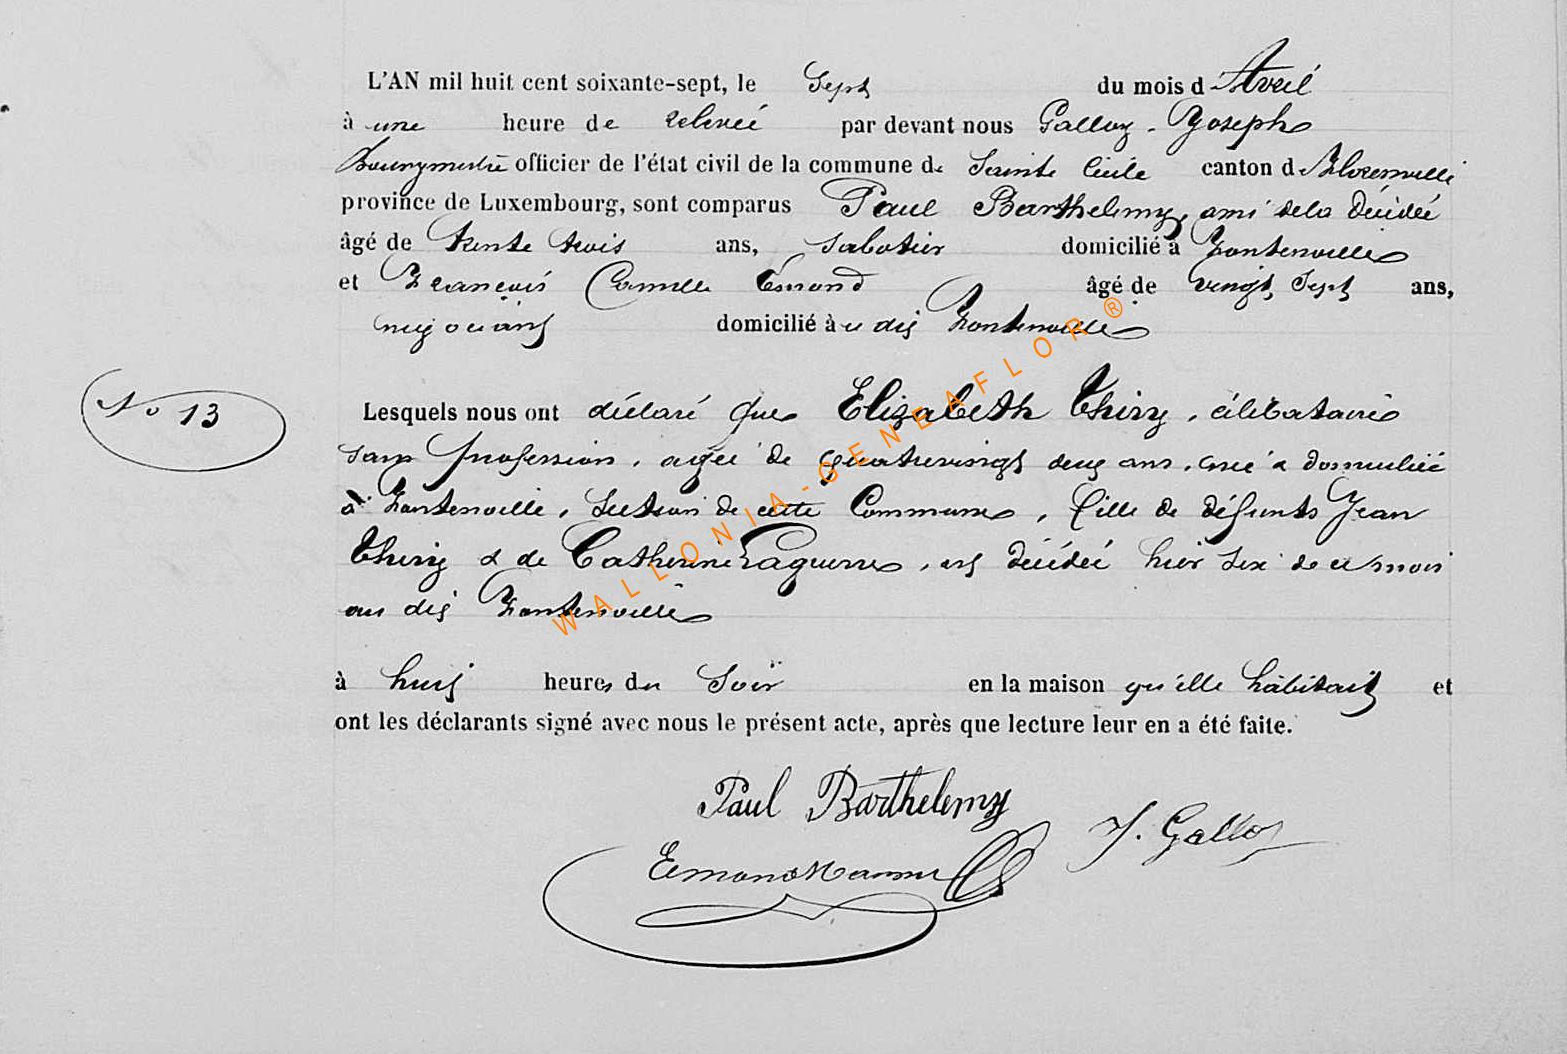 L'AN mil huit cent soixante-sept, le Sept du mois d'Avril
à une heure de relevée par devant nous Galloy Joseph
Bourgmestre officier de l'état civil de la commune de Sainte Cécile canton de Florenville
province de Luxembourg, sont comparus Paul Barthelemy, ami de la décédée
âgé de trente trois ans, sabotier domicilié à Fontenoille
et François Camille Émond âgé de vingt Sept ans,
négociant domicilié à u dit Fontenoille
No 13
Lesquels nous ont déclaré que Elizabeth Thiry, célibataire
sans profession, agée de quatrevingt deux ans, née & domiciliée
à Fontenoille, Section de cette Commune, fille de défunts Jean
Thiry & de Catherine Laguerre, est décédée hier six de ce mois
au dit Fontenoille
à huit heures du Soir en la maison qu'elle habitait et
ont les déclarants signé avec nous le présent acte, après que lecture leur en a été faite.
Paul Barthelemy
J. Galloy
Emond
WALLONIA-GENEAFLOR ®